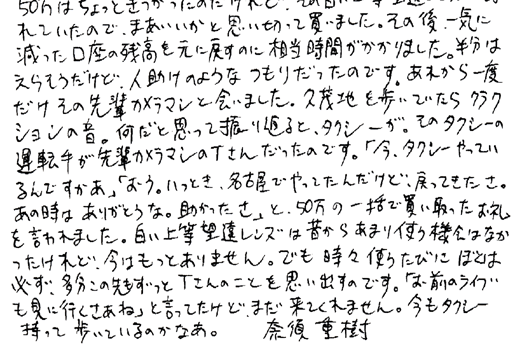 50万はちょっときつかったのだけれど、その白い上等望遠
れていたので、まあいいかと思い切って買いました。その後、一気に
減った口座の残高を元に戻すのに相当時間がかかりました。半分は
えらそうだけど、人助けのようなつもりだったのです。あれから一度
だけその先輩カメラマンと会いました。久茂地を歩いていたらクラク
ションの音。何だと思って振り返ると、タクシーが。そのタクシーの
運転手が先輩カメラマンのTさんだったのです。「今、タクシーやってい
るんですかあ」「おう。いっとき、名古屋でやってたんだけど、戻ってきたさ。
あの時はありがとうな。助かったさ」と、50万の一括で買い取ったお礼
を言われました。白い上等望遠レンズは昔からあまり使う機会はなか
ったけれど、今はもっとありません。でも時々使うたびにほとほと
必ず、多分この先もずっとTさんのことを思い出すのです。「お前のライブ
も見に行くさあね」と言ってたけど、まだ来てくれません。今もタクシー
持って歩いているのかなあ。 奈須重樹